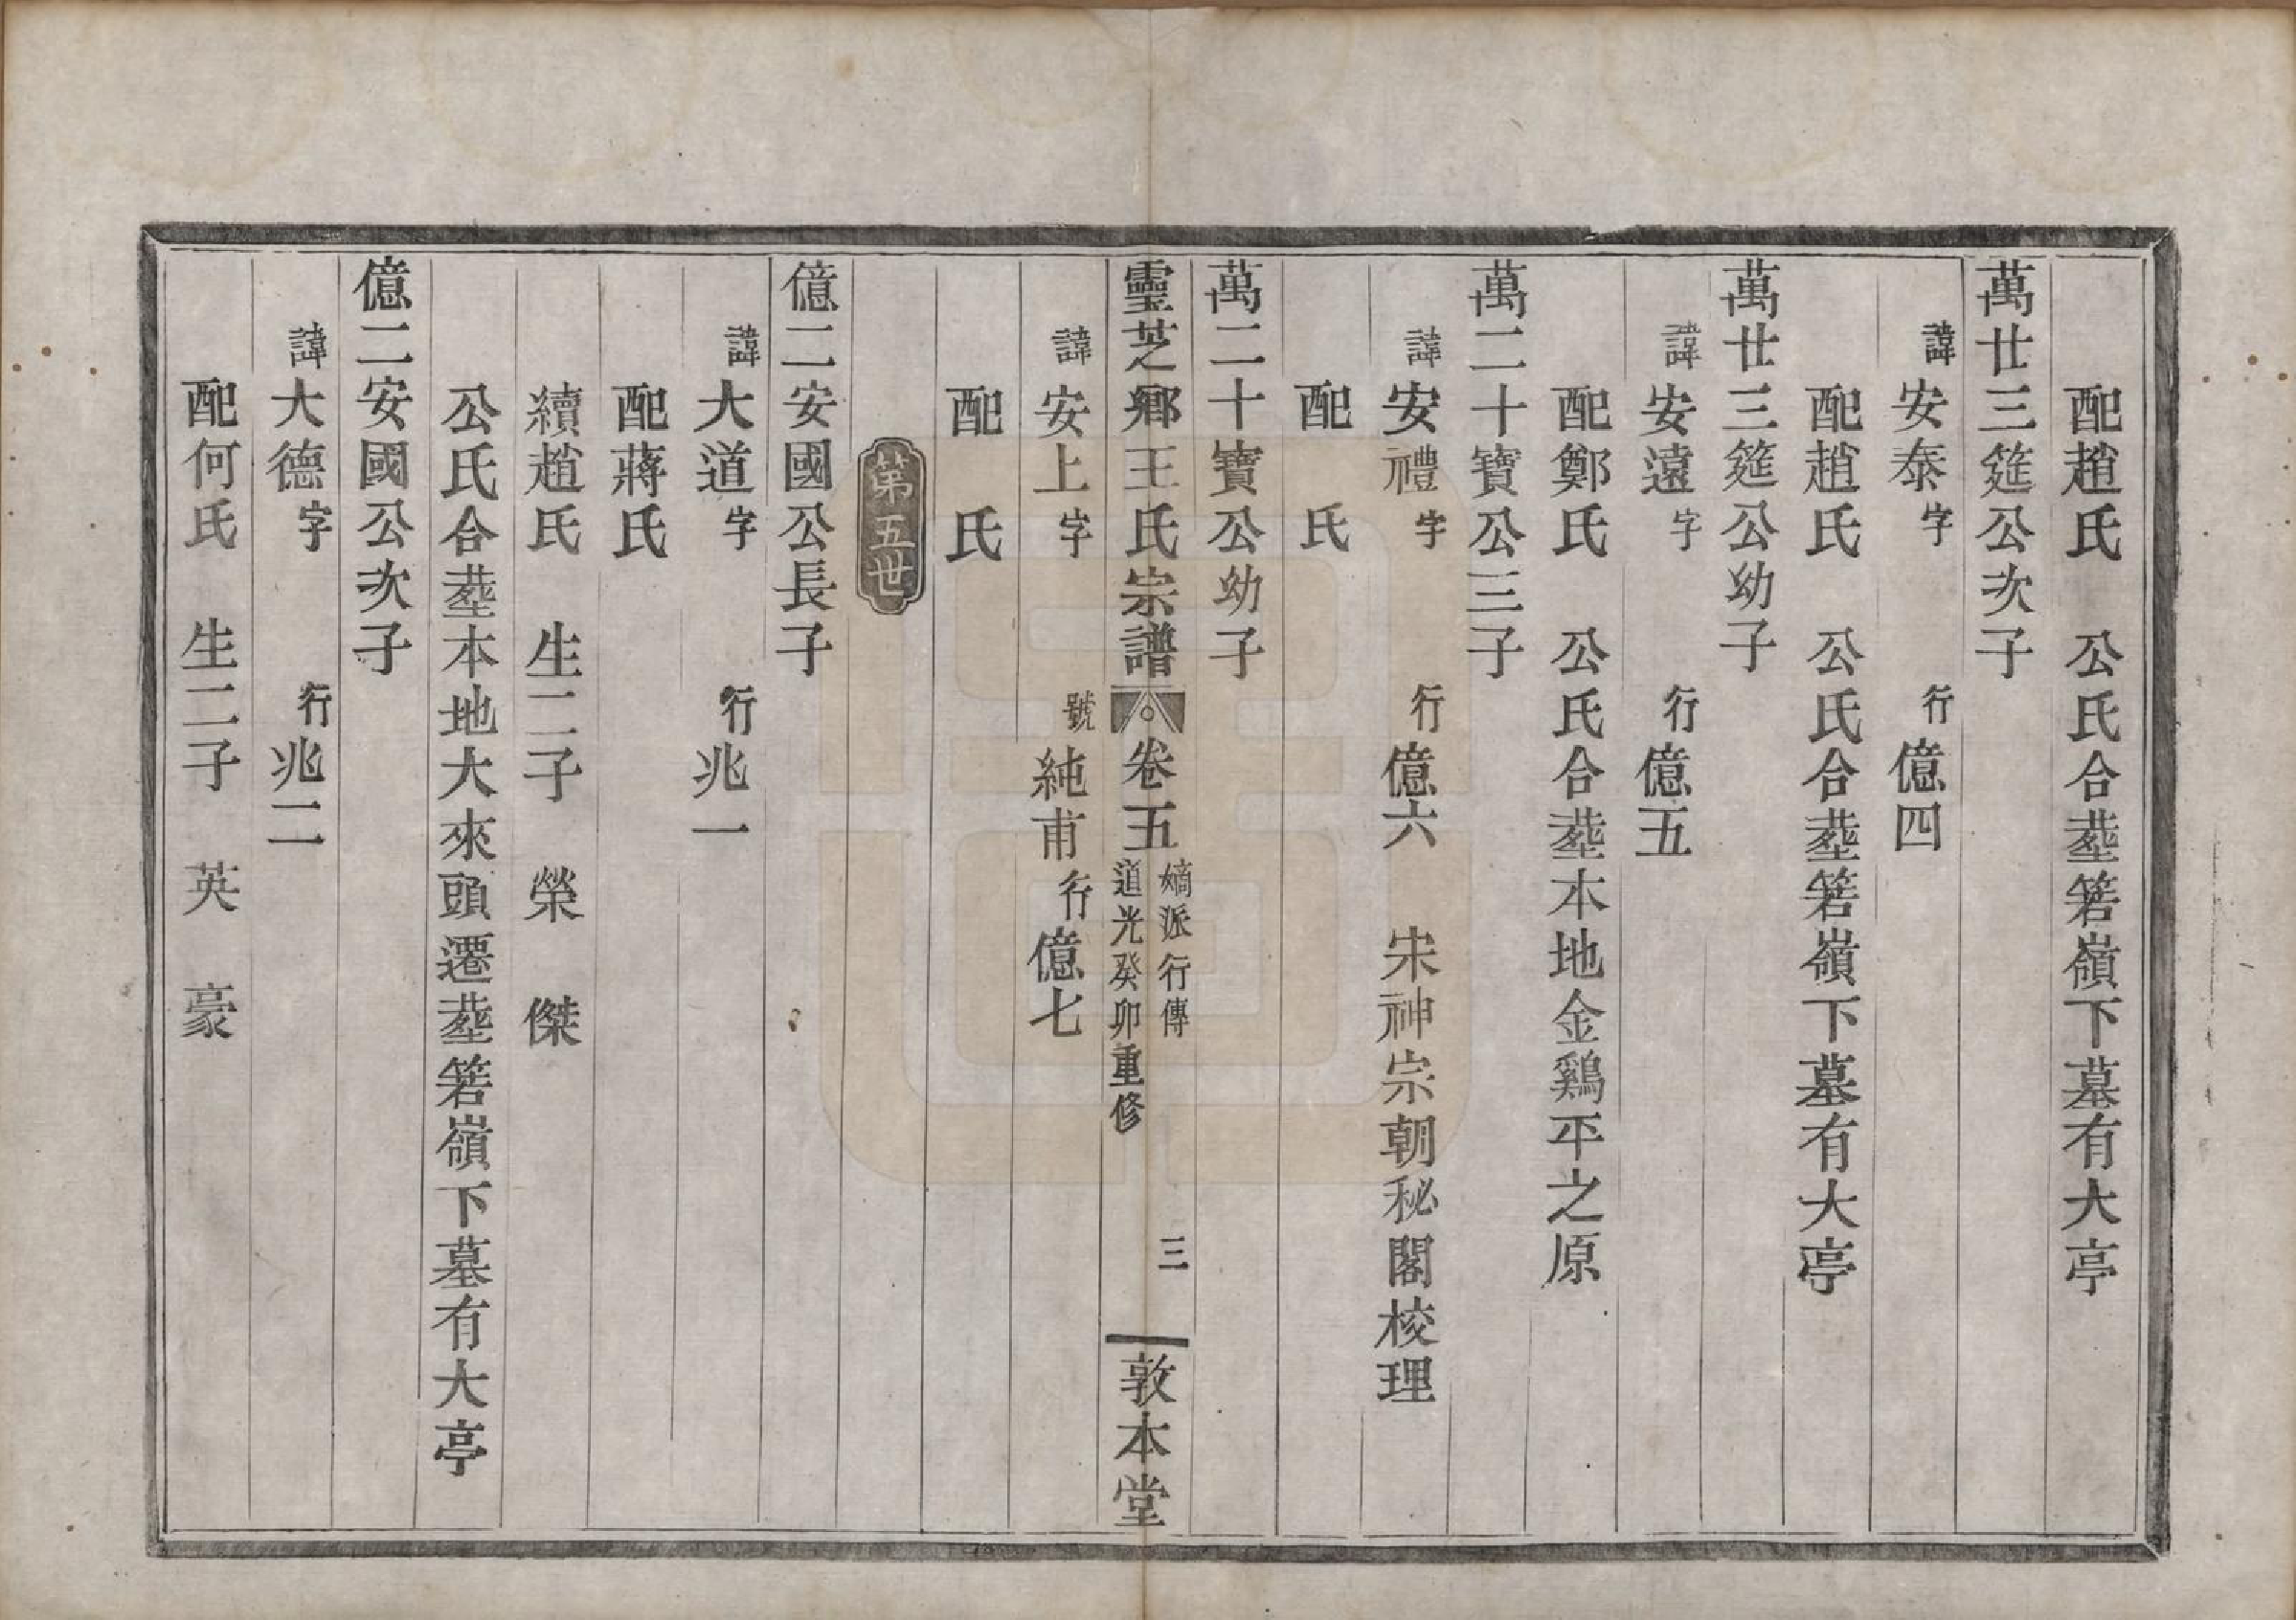 配趙氏　公氏合塟箬嶺下墓有大亭
萬廿三筵公次子
諱安泰字　行億四
配趙氏　公氏合塟箬嶺下墓有大亭
萬廿三筵公幼子
諱安遠字　行億五
配鄭氏　公氏合塟本地金鷄平之原
萬二十寶公三子
諱安禮字　行億六　宋神宗朝秘閣校理
配　氏
萬二十寶公幼子
靈芝鄉王氏宗譜　卷五　嫡派行傳　道光癸卯重修　三　敦本堂
諱安上字　號純甫　行億七
配　氏
第五世
億二安國公長子
諱大道字　行兆一
配蔣氏
續趙氏　生二子　榮　傑
公氏合塟本地大來頭遷塟箬嶺下墓有大亭
億二安國公次子
諱大德字　行兆二
配何氏　生二子　英　豪